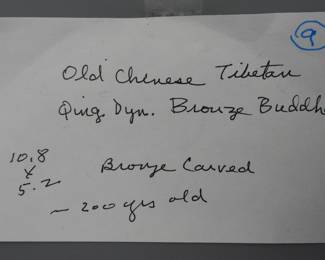 9
Old Chinese Tibetan
Qing. Dyn. Bronze Buddh
10.8
x
5.2
Bronze Carved
~ 200 yrs old